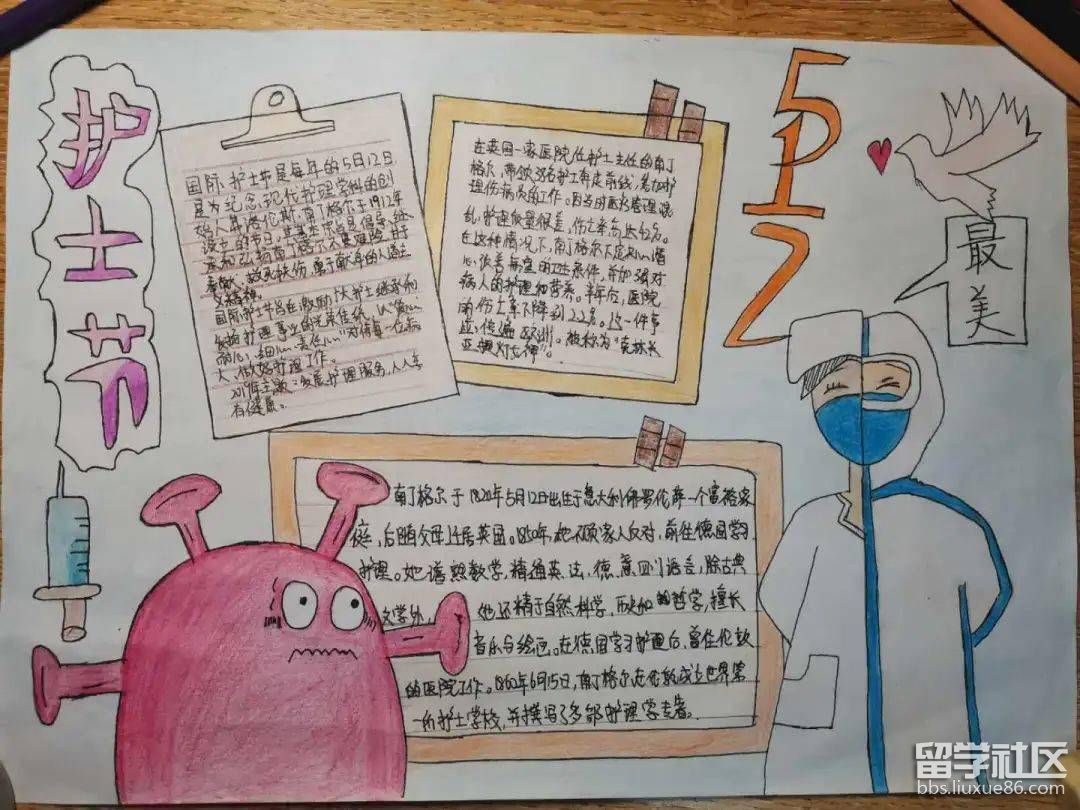 护士节
国际护士节是每年的5月12日
是为纪念现代护理学科的创
始人弗洛伦斯·南丁格尔于1912年
设立的节日。其基本宗旨是倡导、继
承和弘扬南丁格尔不畏艰险、甘于
奉献、救死扶伤、勇于献身的人道主
义精神。
国际护士节旨在激励广大护士继承和
发扬护理事业的光荣传统,以“爱心、
耐心、细心、责任心”对待每一位病
人,做好护理工作。
主题:发展护理服务,人人享
有健康。
在英国一家医院任护士主任的南丁
格尔,带领38名护士奔走前线,
理伤病员的工作。因当时医院管理混
乱,护理质量很差,伤亡率高达42%。
在这种情况下,南丁格尔下定决心
改善每室的卫生条件,并加强对
病人的护理和营养。半年后,医院
的伤亡率下降到2.2%。这一件事
传遍欧洲。被称为“克林米
亚提灯女神”。
512
最美
南丁格尔于1820年5月12日出生于意大利佛罗伦萨一个富裕家
庭,后随父母迁居英国。1850年,她不顾家人反对,前往德国学习
护理。她谙熟数学,精通英、法、德、意四门语言,除古典
文学外,她还精于自然科学,历史和哲学,擅长
音乐与绘画。在德国学习护理后,曾任伦敦
的医院工作。1860年6月15日,南丁格尔在伦敦成立世界第
一所护士学校,并撰写了多部护理学专著。
留学社区
bbs.liuxue86.com